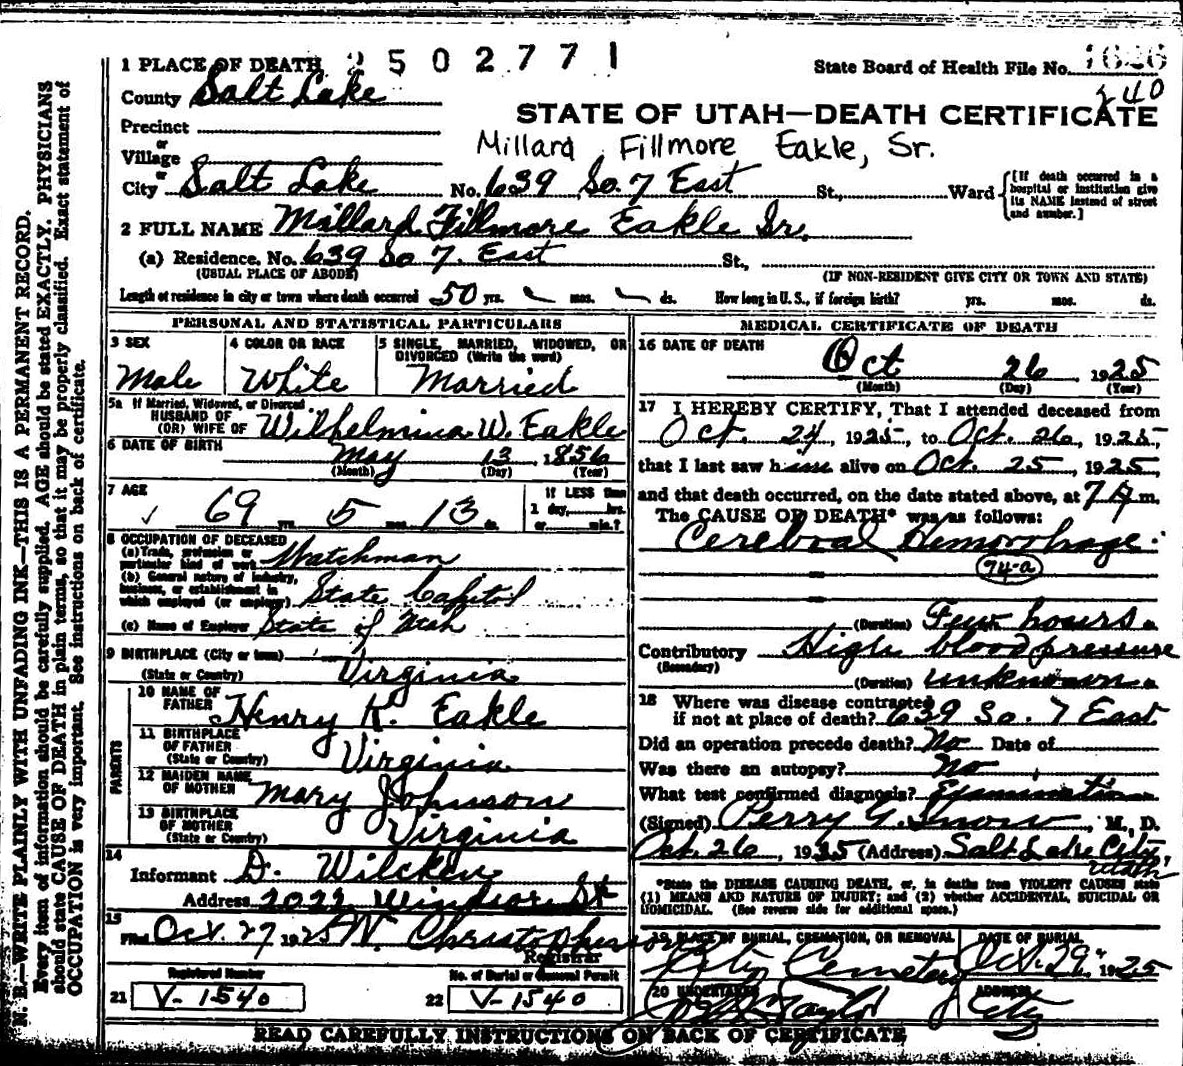 1 PLACE OF DEATH 2502771
State Board of Health File No. 1626
240
County Salt Lake
STATE OF UTAH—DEATH CERTIFICATE
Precinct
or
Village
Millard Fillmore Eakle, Sr.
or
City Salt Lake No. 639 So. 7 East St., Ward
[If death occurred in a hospital or institution give its NAME instead of street and number.]
2 FULL NAME Millard Fillmore Eakle Sr.
(a) Residence. No. 639 So 7. East St.,
(USUAL PLACE OF ABODE) (IF NON-RESIDENT GIVE CITY OR TOWN AND STATE)
Length of residence in city or town where death occurred 50 yrs. mos. ds. How long in U. S., if foreign birth? yrs. mos. ds.
PERSONAL AND STATISTICAL PARTICULARS
3 SEX
Male
4 COLOR OR RACE
White
5 SINGLE, MARRIED, WIDOWED, OR DIVORCED (Write the word)
Married
5a If Married, Widowed, or Divorced
HUSBAND OF
(OR) WIFE OF Wilhelmina W. Eakle
6 DATE OF BIRTH
May 13 1856
(Month) (Day) (Year)
7 AGE
69 yrs. 5 mos. 13 ds.
If LESS than
1 day, hrs.
or min.?
8 OCCUPATION OF DECEASED
(a) Trade, profession or
particular kind of work Watchman
(b) General nature of industry,
business, or establishment in
which employed (or employer) State Capitol
(c) Name of Employer State of Utah
9 BIRTHPLACE (City or town)
(State or Country) Virginia
PARENTS
10 NAME OF
FATHER Henry K. Eakle
11 BIRTHPLACE
OF FATHER
(State or Country) Virginia
12 MAIDEN NAME
OF MOTHER Mary Johnson
13 BIRTHPLACE
OF MOTHER
(State or Country) Virginia
14
Informant D. Wilcken
Address 2022 Windsor St
15
Filed Oct. 27 1925 W. Christopherson
Registrar
Registered Number
21 V-1540
No. of Burial or General Permit
22 V-1540
MEDICAL CERTIFICATE OF DEATH
16 DATE OF DEATH
Oct 26 1925
(Month) (Day) (Year)
17 I HEREBY CERTIFY, That I attended deceased from
Oct. 24, 1925, to Oct. 26, 1925,
that I last saw him alive on Oct. 25, 1925,
and that death occurred, on the date stated above, at 7 A m.
The CAUSE OF DEATH* was as follows:
Cerebral Hemorrhage
74-a
(Duration) Few hours
Contributory High blood pressure
(Secondary)
(Duration) unknown
18 Where was disease contracted
if not at place of death? 639 So. 7 East
Did an operation precede death? No Date of
Was there an autopsy? No
What test confirmed diagnosis? Examination
(Signed) Perry G. Snow, M. D.
Oct. 26, 1925 (Address) Salt Lake City,
Utah
*State the DISEASE CAUSING DEATH, or, in deaths from VIOLENT CAUSES state
(1) MEANS AND NATURE OF INJURY; and (2) whether ACCIDENTAL, SUICIDAL OR
HOMICIDAL. (See reverse side for additional space.)
19 PLACE OF BURIAL, CREMATION, OR REMOVAL
City Cemetery
DATE OF BURIAL
Oct. 29, 1925
20 UNDERTAKER
Taylor
ADDRESS
City
READ CAREFULLY INSTRUCTIONS ON BACK OF CERTIFICATE
N. B.—WRITE PLAINLY WITH UNFADING INK—THIS IS A PERMANENT RECORD.
Every item of information should be carefully supplied. AGE should be stated EXACTLY. PHYSICIANS
should state CAUSE OF DEATH in plain terms, so that it may be properly classified. Exact statement of
OCCUPATION is very important. See instructions on back of certificate.